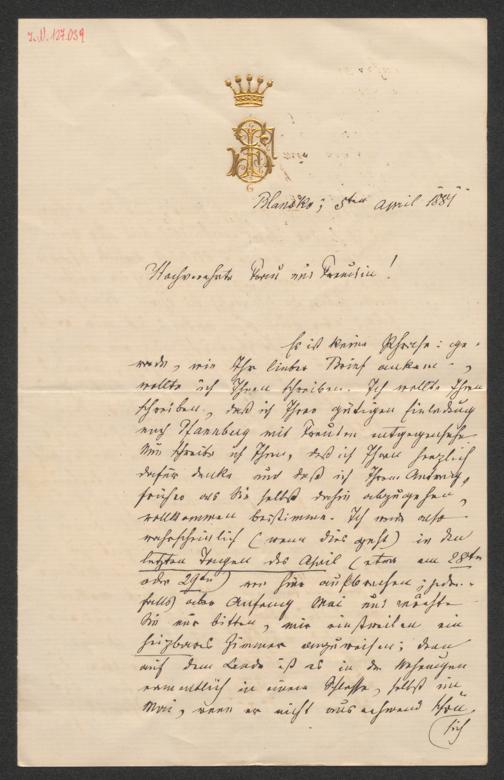 I.N. 127.039
Blansko, 5ten April 1881
Hochverehrte Frau und Freundin!
Es ist keine Phrase: ge-
rade, wie Ihr lieber Brief ankam,
wollte ich Ihnen schreiben. Ich wollte Ihnen
schreiben, daß ich Ihrer gütigen Einladung
nach Pfannberg mit Freuden entgegensehe
Nun schreibe ich Ihnen, daß ich Ihnen herzlich
dafür danke und daß ich Ihrem Antrag,
früher als Sie selbst dahin abzugehen,
vollkommen beistimme. Ich werde also
wahrscheinlich (wenn dies geht) in den
letzten Tagen des April (etwa am 28ten
oder 29ten) von hier aufbrechen; jeden-
falls aber Anfang Mai und möchte
Sie nur bitten, mir einstweilen ein
heizbares Zimmer anzuweisen; denn
auf dem Lande ist es in den
namentlich in einem Schlosse, selbst im
Mai, wenn er nicht ausnehmend schön